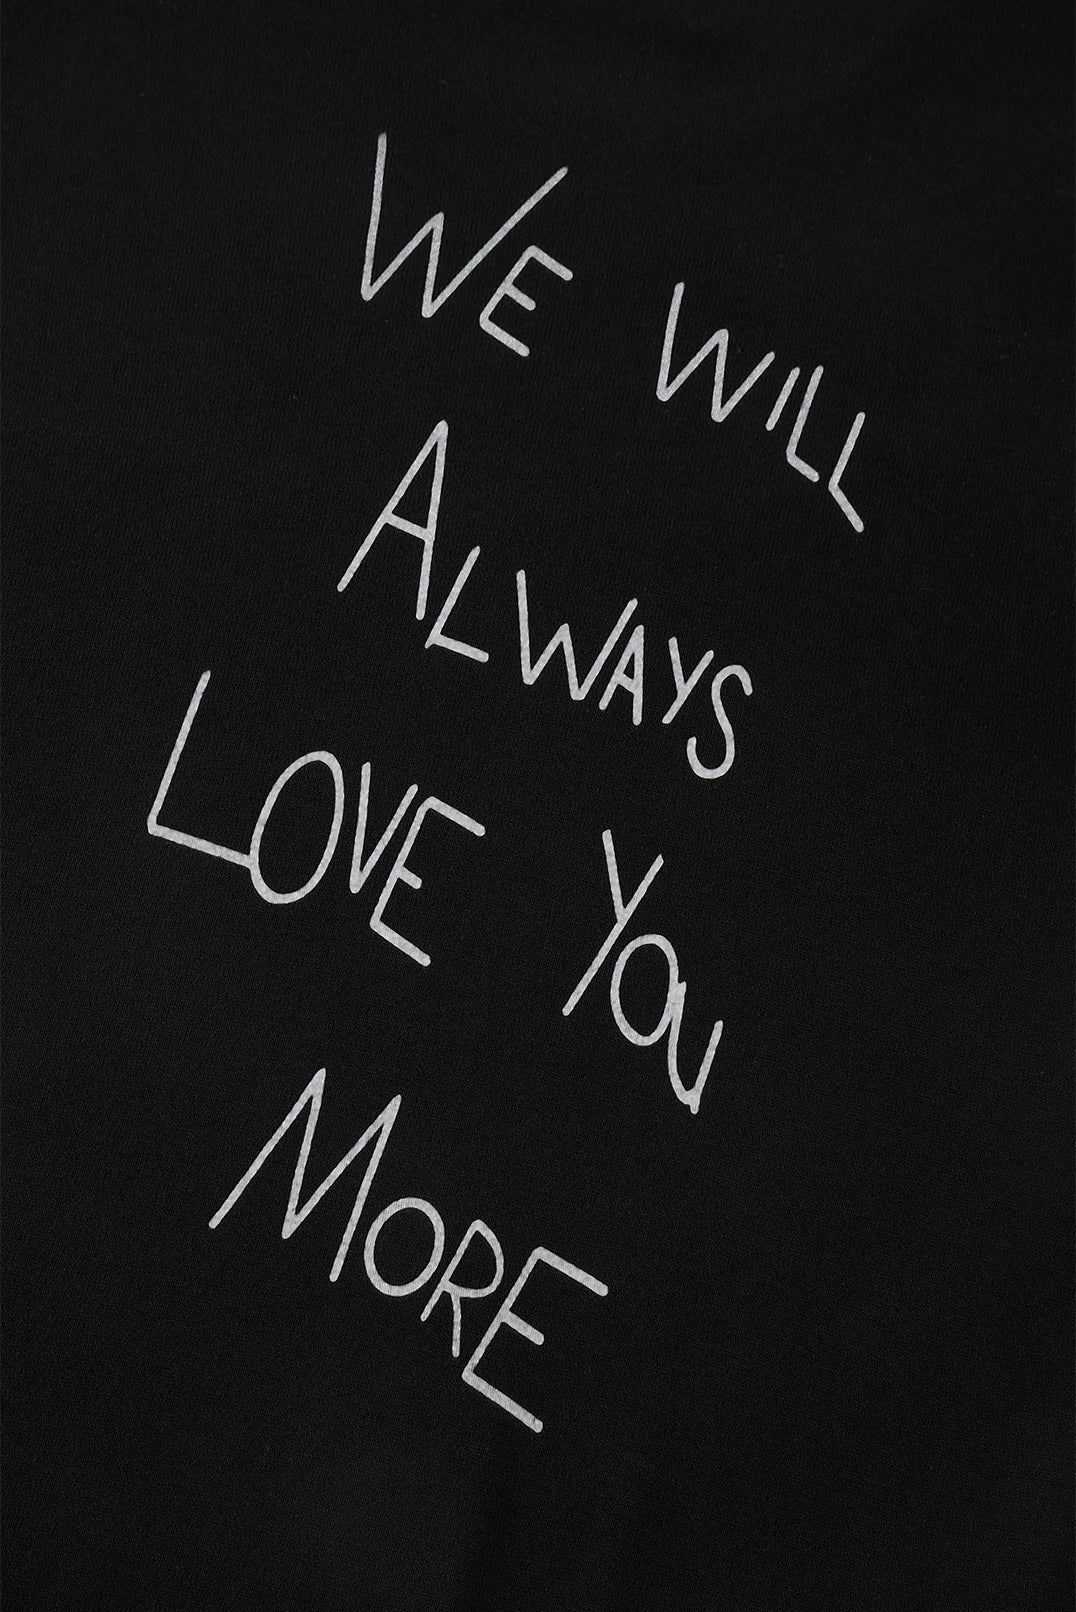 WE WILL
ALWAYS
LOVE YOU
MORE